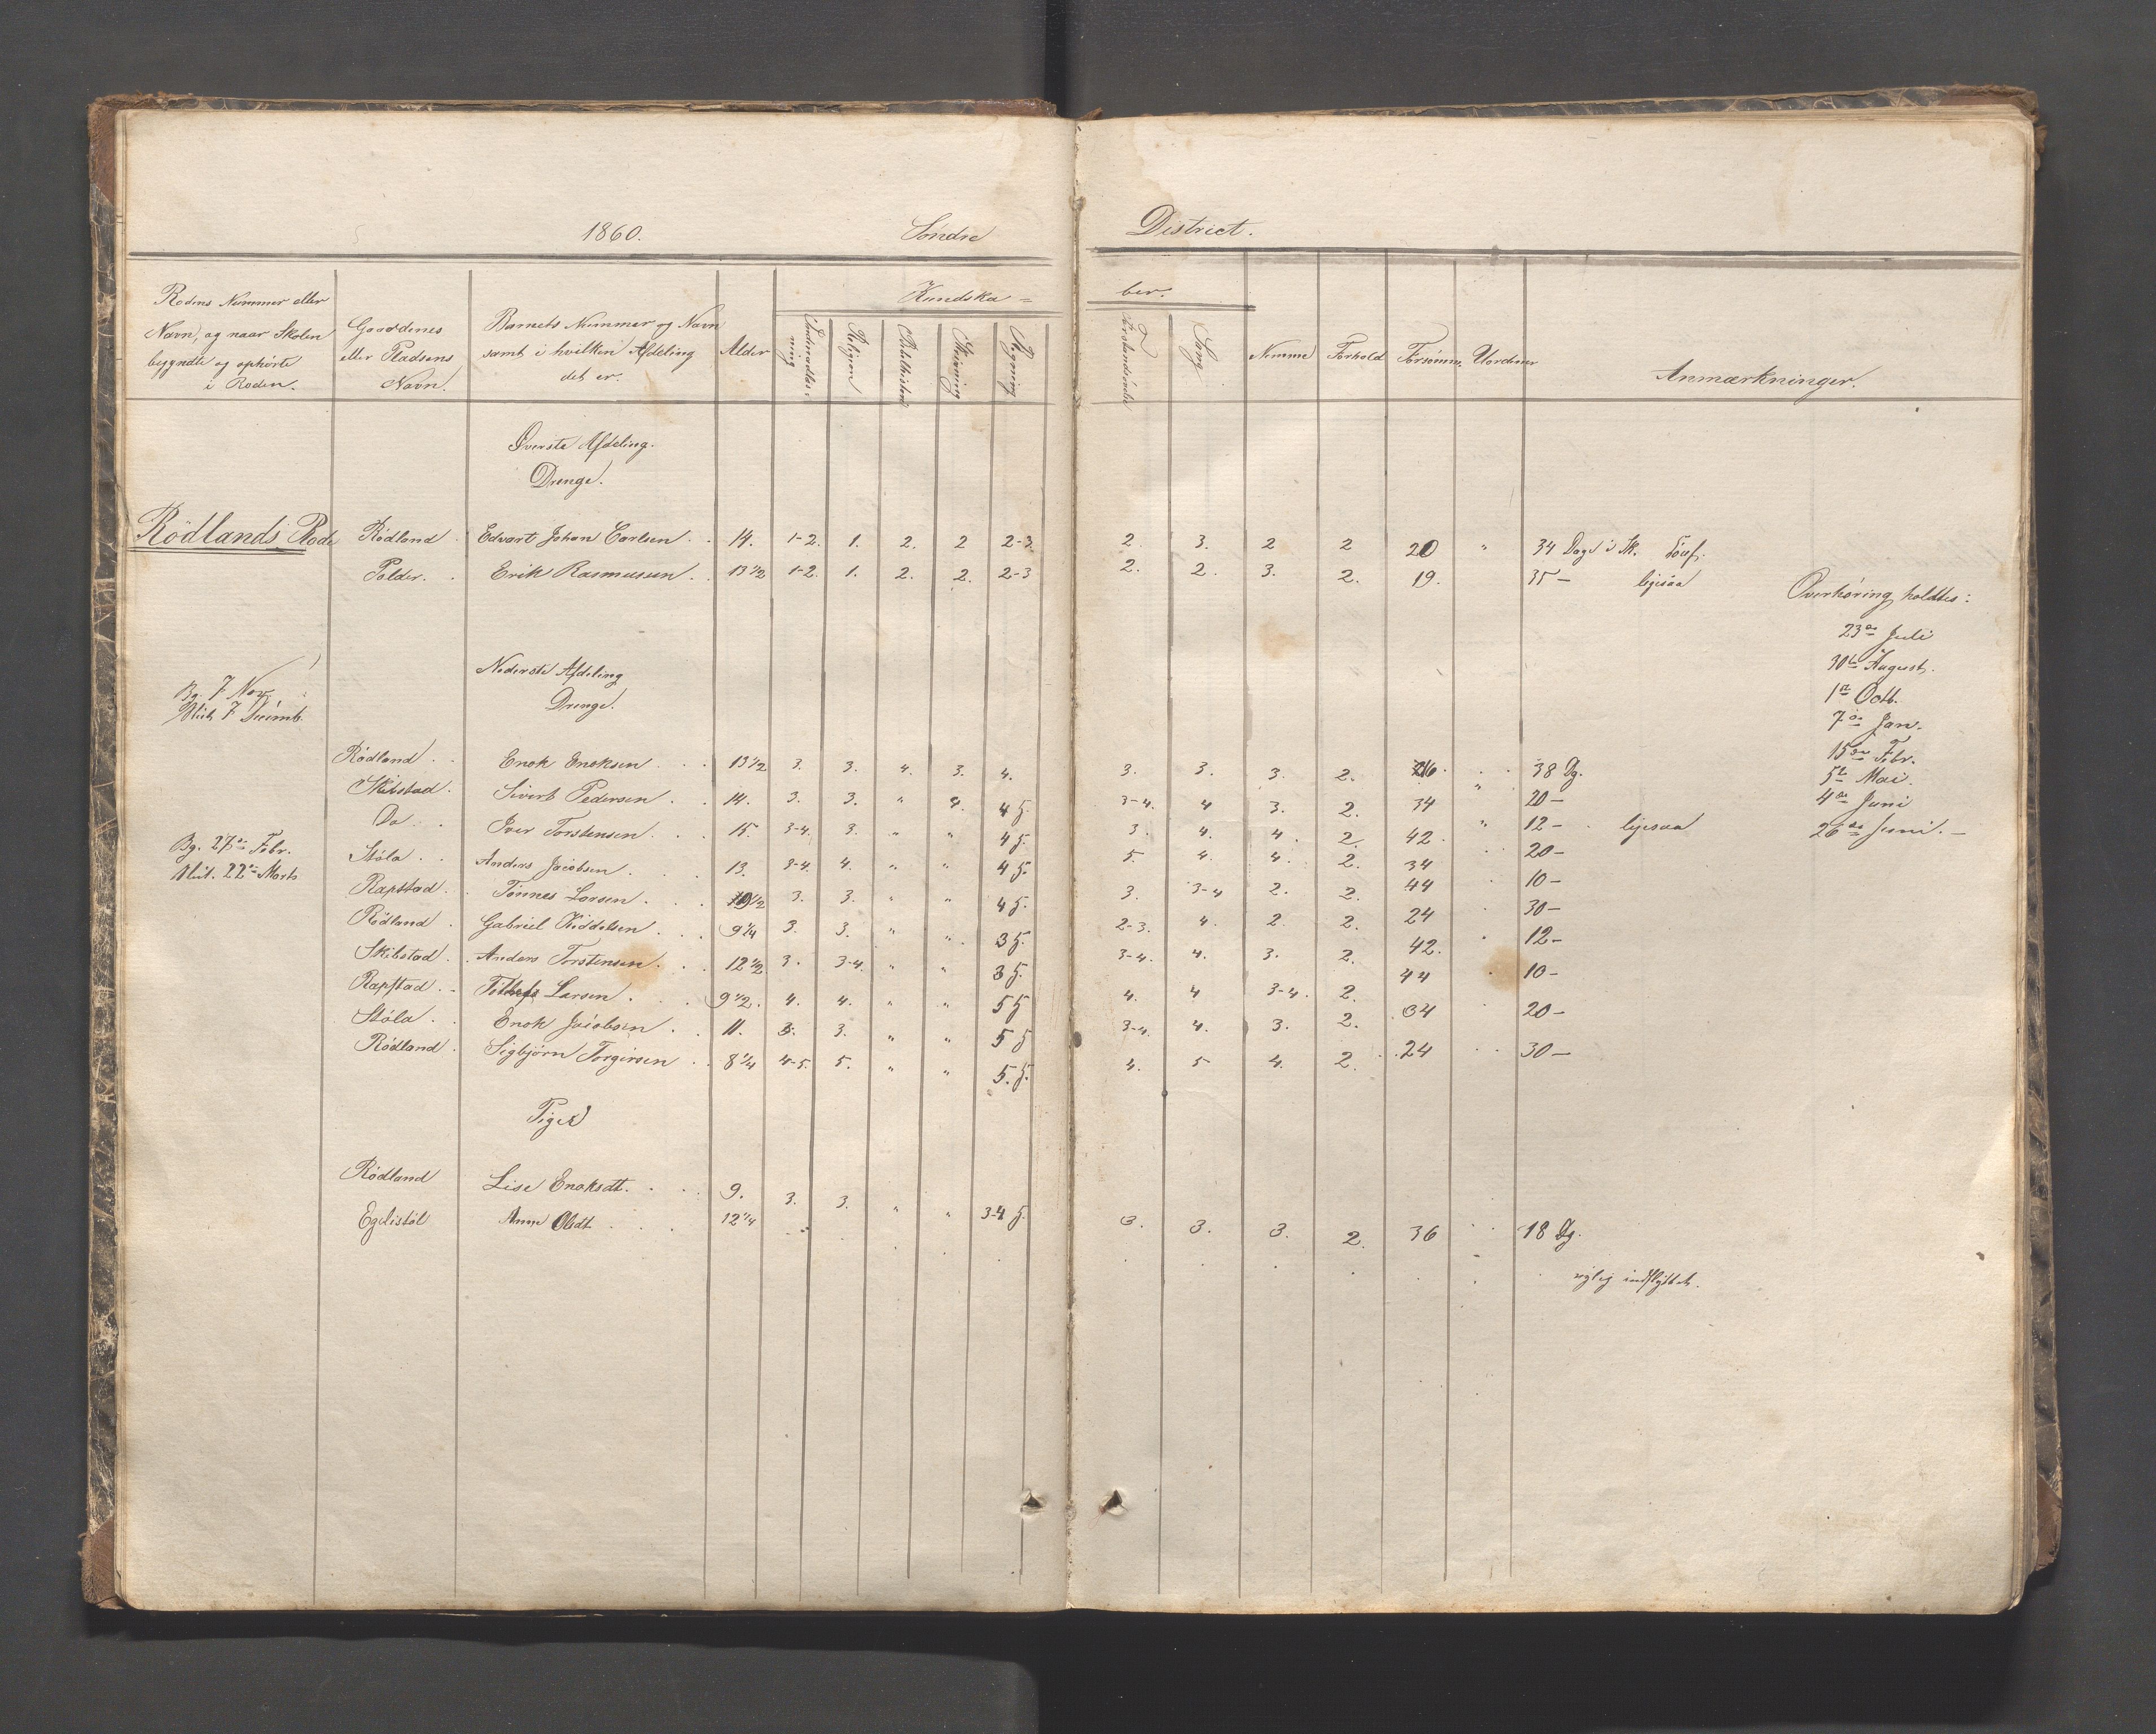 1860. Søndre District.
Rodens Nummer eller Navn, og naar Skolen begyndte og ophørte i Roden.
Gaardenes eller Pladsens Navn.
Barnets Nummer og Navn samt i hvilken Afdeling det er.
Alder
Kundska= ber.
Indenadlæs= ning
Religion
Bibelhistori
Skrivning
Regning
Forstandsøvelse
Sang
Nemme
Forhold
Forsømm.
Uordner
Anmærkninger.
Øverste Afdeling.
Drenge.
Rödlands Rode Rödland Edvart Johan Carlsen 14. 1-2. 1. 2. 2 2-3. 2. 3. 2 2 20 " 34 Dage i Sk.
Polder. Erik Rasmussen 13 1/2 1-2. 1. 2. 2. 2-3 2. 2. 3. 2. 19. 35 — ligesaa
Overhøring holdtes:
23de Juli
30te August.
1ste Octb.
7de Jan.
15de Febr.
5te Mai.
4de Juni
26de Juni. —
Nederste Afdeling
Drenge.
Bg. 7 Nov.
Slut. 7 Decemb.
Rödland Enok Enoksen 13 1/2 3. 3. 4. 3. 4. 3. 3. 3. 2. 26. 38 Dg.
Skibstad. Sivert Pedersen 14. 3. 3. " 4. 4 5. 3-4. 4 3. 2. 34 " 20 —
Do Iver Torstensen 15. 3-4. 3. " " 4 5. 3. 4. 4. 2. 42. " 12 — ligesaa
Bg. 27de Febr.
Slut. 22de Marts
Stöla Anders Jacobsen 13. 3-4. 4. " " 4 5. 5. 4. 4. 2. 34 20 —
Rapstad Tönnes Larsen 10 1/2 3. 3. " " 4 5. 3. 3-4 2. 2. 44 10 —
Rödland Gabriel Kiddelsen 9 1/4 3. 3. " " 3 5. 2-3. 4. 2. 2. 24 30 —
Skibstad Anders Torstensen 12 1/2 3. 3-4. " " 3 5. 3-4. 4. 3. 2. 42. 12 —
Rapstad Larsen 9 1/2. 4. 4. " " 5 5 4. 4 3-4. 2. 44 10 —
Stöla Enok Jacobsen 11. 3. 3. " " 5 5 3-4. 4. 3. 2. 34 20 —
Rödland Sigbjörn Torgersen 8 1/4 4-5. 5. " " 5. 5. 4. 5 4. 2. 24 30 —
Piger
Rödland Lise Enoksdt. 9. 3. 3. " " 3-4 5. 3. 3. 3. 2. 36 18 Dg.
Egelistöl Anne Olsdt 12 1/4 nylig indflyttet.